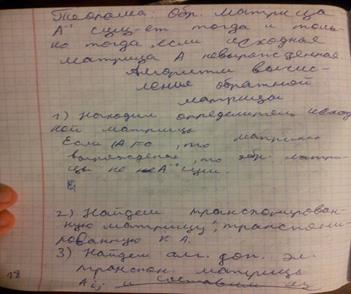 Теорема: Обр. матрица
A⁻¹ сущ-ет тогда и толь-
ко тогда, если исходная
матрица А невырожденная
Алгоритм вычис-
ления обратной
матрицы
1) Находим определитель исход-
ной матрицы
Если |A|=0, то матрица
вырожденная, то обр. матри-
цы не сущ.
2) Найдем транспонирован-
ную матрицу, транспони-
рованную к А.
3) Найдем алг. доп. эл.
транспон. матрицы
Aij и составим из
18